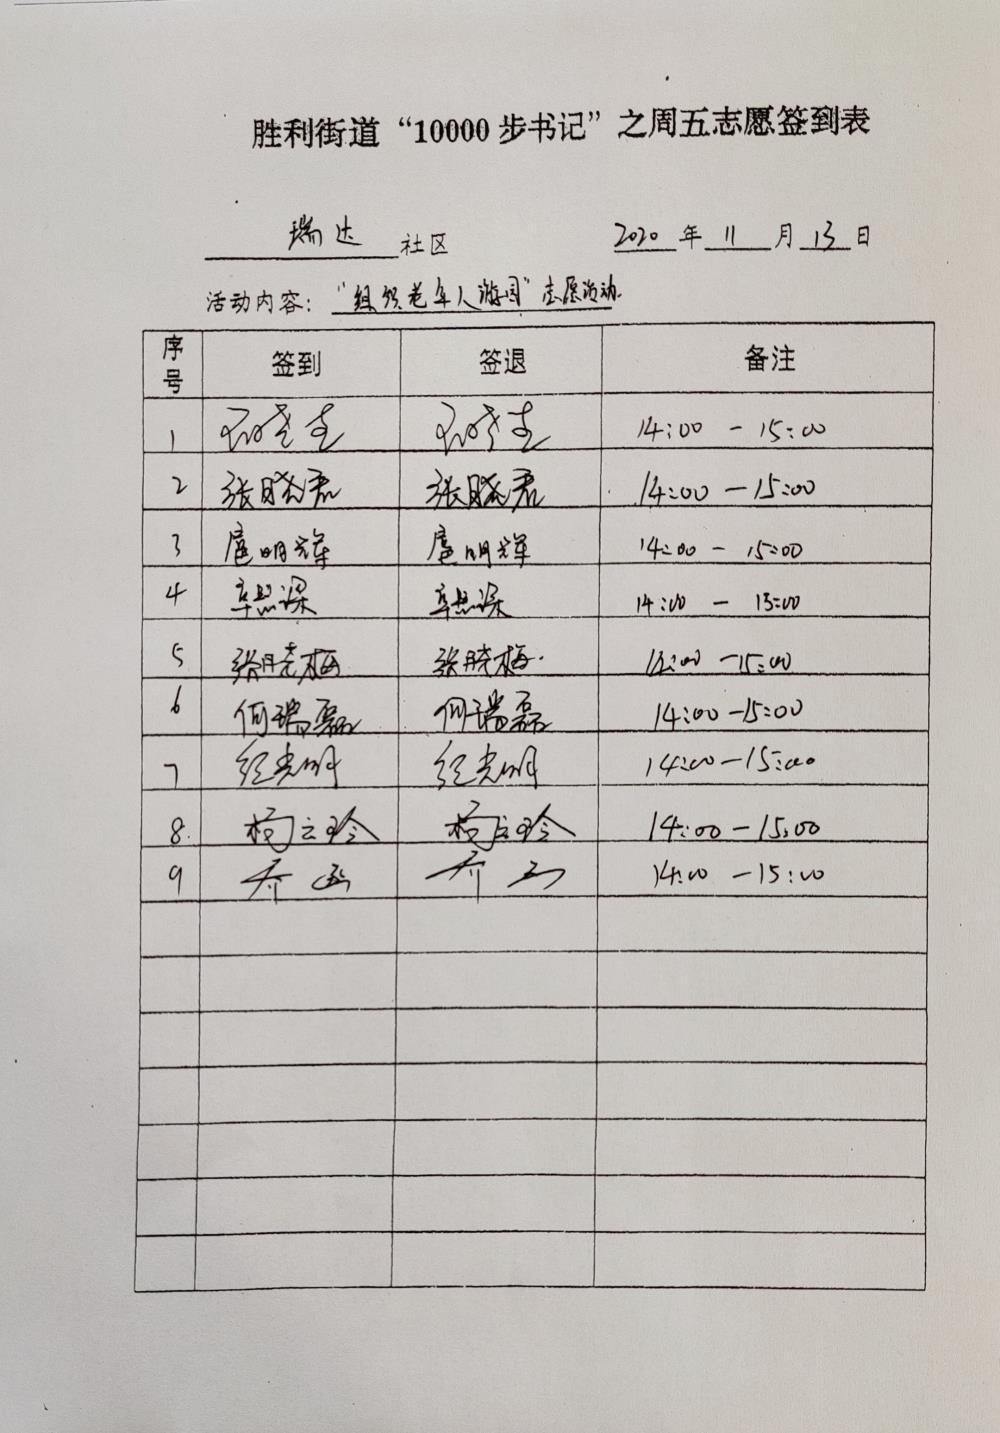 胜利街道“10000步书记”之周五志愿签到表
瑞达 社区 2020 年 11 月 13 日
活动内容：“组织老年人游园”志愿活动.
序号 签到 签退 备注
1 14:00 - 15:00
2 张晓君 张晓君 14:00 - 15:00
3 扈明辉 扈明辉 14:00 - 15:00
4 14:00 - 15:00
5 张晓梅 张晓梅. 14:00 - 15:00
6 何瑞磊 何瑞磊 14:00 - 15:00
7 纪光明 纪光明 14:00 - 15:00
8. 杨云玲 杨云玲 14:00 - 15:00
9 14:00 - 15:00